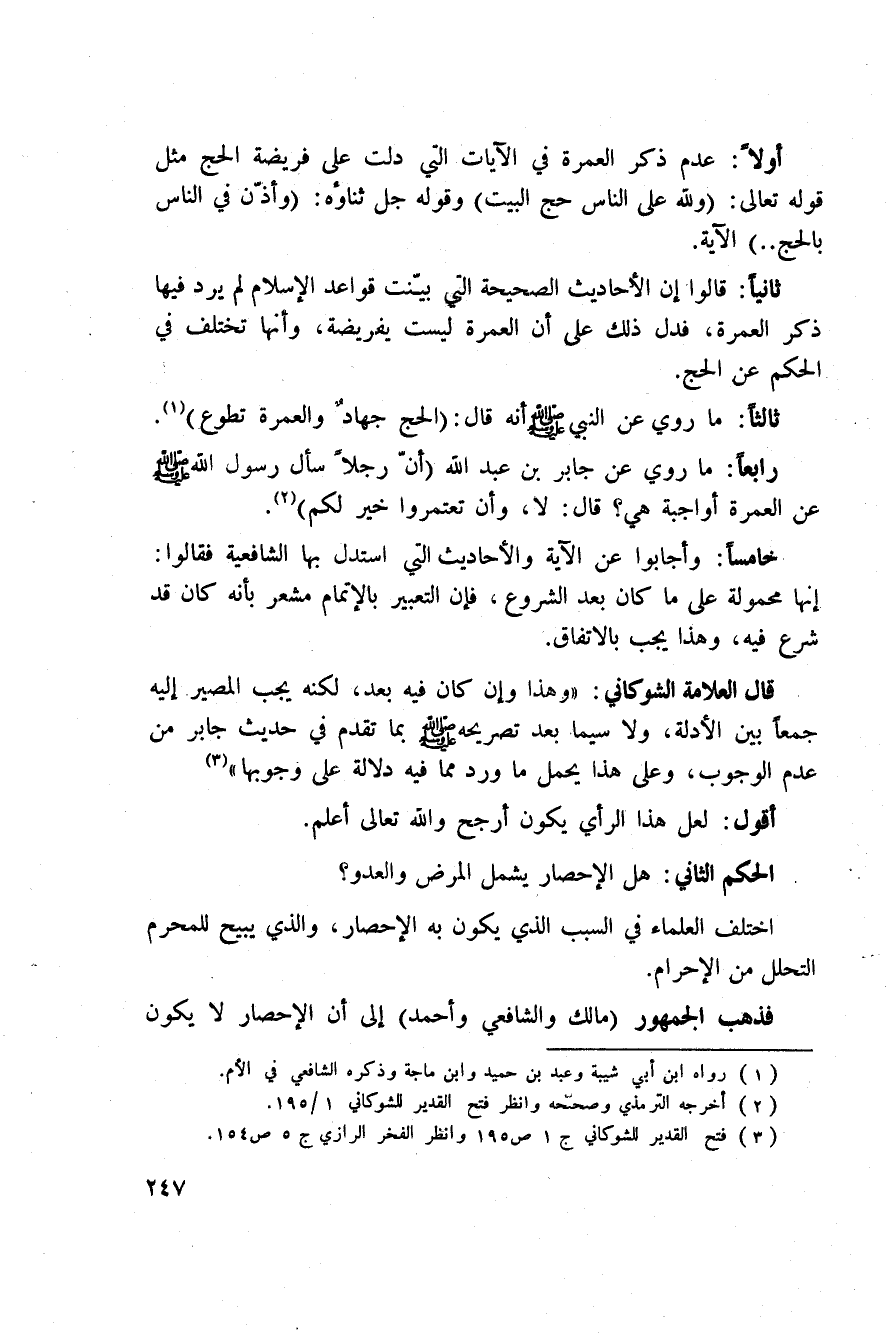 أولاً: عدم ذكر العمرة في الآيات التي دلت على فريضة الحج مثل
قوله تعالى: (ولله على الناس حج البيت) وقوله جل ثناؤه: (وأذّن في الناس
بالحج..) الآية.
ثانياً: قالوا إن الأحاديث الصحيحة التي بيّنت قواعد الإسلام لم يرد فيها
ذكر العمرة، فدل ذلك على أن العمرة ليست يفريضة، وأنها تختلف في
الحكم عن الحج.
ثالثاً: ما روي عن النبي ﷺ أنه قال: (الحج جهادٌ والعمرة تطوع)(١).
رابعاً: ما روي عن جابر بن عبد الله (أنّ رجلاً سأل رسول الله ﷺ
عن العمرة أواجبة هي؟ قال: لا، وأن تعتمروا خير لكم)(٢).
خامساً: وأجابوا عن الآية والأحاديث التي استدل بها الشافعية فقالوا:
إنها محمولة على ما كان بعد الشروع، فإن التعبير بالإتمام مشعر بأنه كان قد
شرع فيه، وهذا يجب بالاتفاق.
قال العلامة الشوكاني: «وهذا وإن كان فيه بعد، لكنه يجب المصير إليه
جمعاً بين الأدلة، ولا سيما بعد تصريحه ﷺ بما تقدم في حديث جابر من
عدم الوجوب، وعلى هذا يحمل ما ورد مما فيه دلالة على وجوبها»(٣)
أقول: لعل هذا الرأي يكون أرجح والله تعالى أعلم.
الحكم الثاني: هل الإحصار يشمل المرض والعدو؟
اختلف العلماء في السبب الذي يكون به الإحصار، والذي يبيح للمحرم
التحلل من الإحرام.
فذهب الجمهور (مالك والشافعي وأحمد) إلى أن الإحصار لا يكون
(١) رواه ابن أبي شيبة وعبد بن حميد وابن ماجة وذكره الشافعي في الأم.
(٢) أخرجه الترمذي وصححّه وانظر فتح القدير للشوكاني ١/١٩٥.
(٣) فتح القدير للشوكاني ج ١ ص١٩٥ وانظر الفخر الرازي ج ٥ ص١٥٤.
٢٤٧